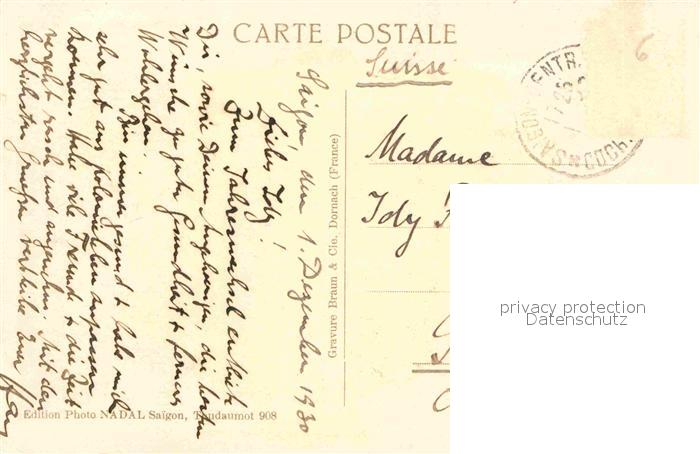 CARTE POSTALE
Suisse
Saïgon, den 1. Dezember 1930
Liebe Idy!
Zum Jahreswechsel entbiete
Dir, sowie Deinen Angehörigen, die besten
Wünsche zu guter Gesundheit & fernerem
Wohlergehen.
Bin immer gesund & habe mich
sehr gut ans Kolonialleben anpassen
können. Habe viele Freunde & die Zeit
vergeht rasch und angenehm. Mit den
herzlichsten Grüssen verbleibe Euer
Gravure Braun & Cie, Dornach (France)
Madame
Idy
SAIGON COCH.
6
Edition Photo NADAL Saïgon, Thudaumot 908
privacy protection
Datenschutz